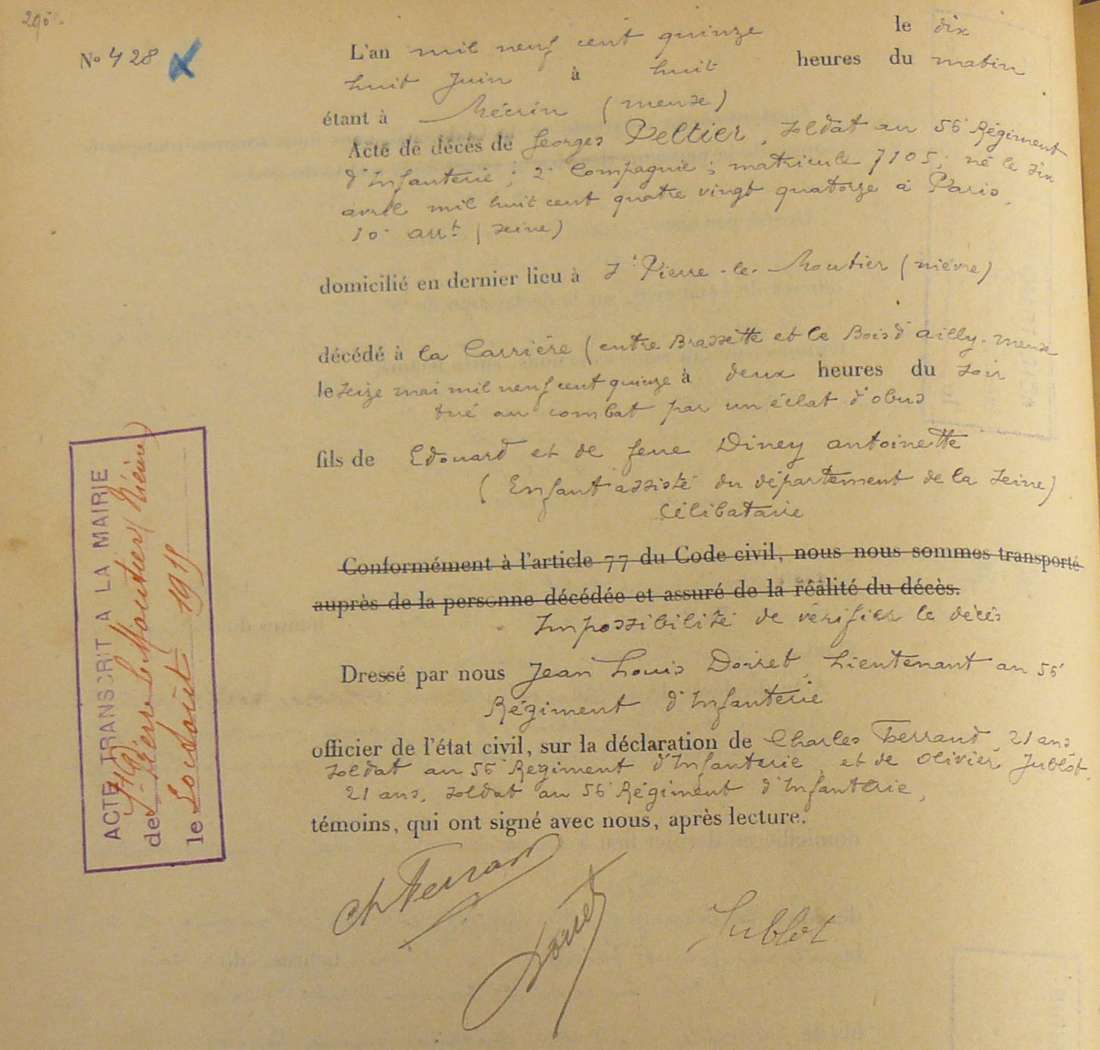 295.
N° 428
L'an mil neuf cent quinze le dix
huit Juin à huit heures du matin
étant à Mécrin (meuse)
Acte de décès de Georges Peltier, soldat au 56e Régiment
d'Infanterie ; 2e Compagnie ; matricule 7105 ; né le six
avril mil huit cent quatre vingt quatorze à Paris,
10e arrt (seine)
domicilié en dernier lieu à St Pierre-le-Moutier (nièvre)
décédé à la Carrière (entre Brassette et le Bois d'ailly. meuse
le seize mai mil neuf cent quinze à deux heures du soir
tué au combat par un éclat d'obus
fils de Edouard et de feue Diney antoinette
(Enfant assisté du département de la seine)
Célibataire
Conformément à l'article 77 du Code civil, nous nous sommes transporté
auprès de la personne décédée et assuré de la réalité du décès.
Impossibilité de vérifier le décès
Dressé par nous Jean Louis Doiret, Lieutenant au 56e
Régiment d'Infanterie
officier de l'état civil, sur la déclaration de Charles Ferrand, 21 ans
soldat au 56e Régiment d'Infanterie, et de Olivier Jublot,
21 ans, soldat au 56e Régiment d'Infanterie,
témoins, qui ont signé avec nous, après lecture.
Ch Ferrand
Doiret
Jublot
ACTE TRANSCRIT A LA MAIRIE
de St Pierre le Moutier (Nièvre)
le août 1915